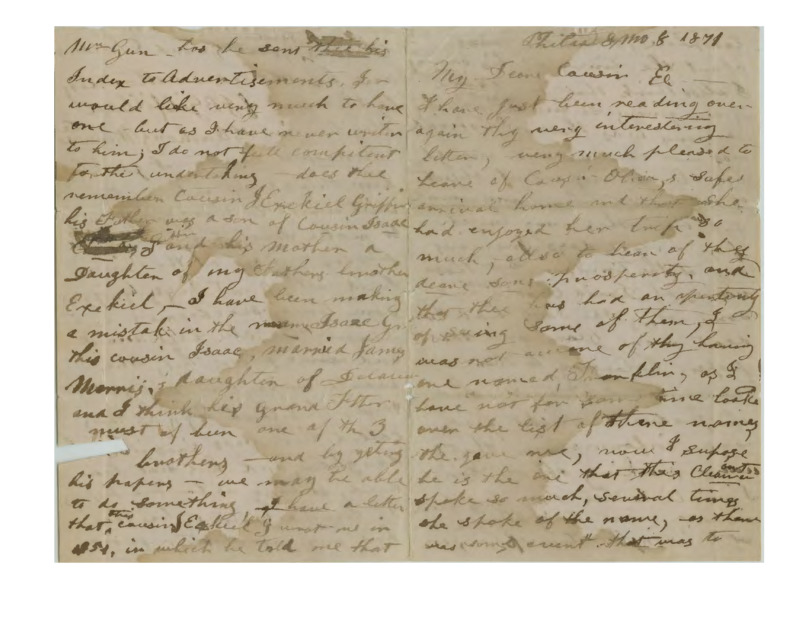 Phila 8 mo. 8 1871
My Dear Cousin
I have just been reading over
again thy very interesting
letter, very much pleased to
heare of Cousin Oliva,s safe
arrival home and that she
had enjoyed her trip so
much, also to hear of thy
deare sons prosperity, and
that thee has had an
of seing some of them, I
was not of thy having
one named Franklin, as I
have not for some time looke
over the list of names
the gave me, now I supose
he is the one that
spoke so much, several times
she spoke of the name, as
was some event that was to
Mr Gun has he sent his
Index to Advertisements, I
would like very much to have
one but as I have never writen
to him; I do not
for the undertaking does thee
remember Cousin J Ezekiel Griffin
his Father was a son of Cousin Isaac
and his mother a
Daughter of my Fathers brother
Ezekiel, I have been making
a mistak in the Isaac
this cousin Isaac, married
Morris,s daughter of
and I think his Grand
must of ben one of th 3
brothers and by geting
his papers we may be able
to do something, I have a letter
that this cousin Ezekiel me in
in which he told me that